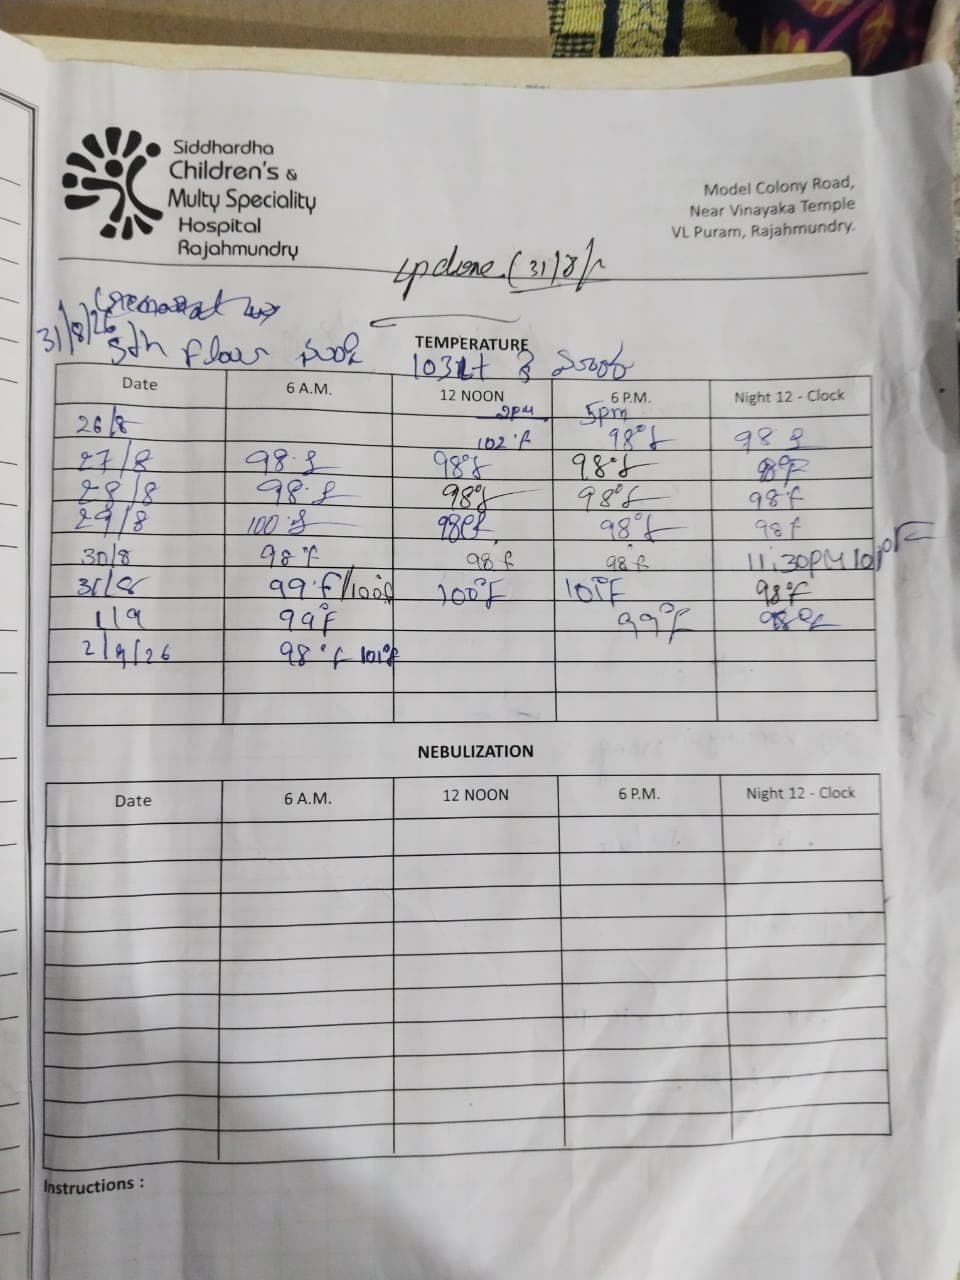 Siddhardha
Children's &
Multy Speciality
Hospital
Rajahmundry
Model Colony Road,
Near Vinayaka Temple
VL Puram, Rajahmundry.
LP done (31/8/
31/8/26
5th floor
TEMPERATURE
Date 6 A.M. 12 NOON 6 P.M. Night 12 - Clock
26/8 2PM 102°F 5pm 98°F 98 F
27/8 98°F 98°F 98°F 98°F
28/8 98°F 98°F 98°F 98°F
29/8 100°F 98°F 98°F 98 F
30/8 98°F 98 F 98 F 11:30PM 101°F
31/8 99°F/100°F 100°F 101°F 98°F
1/9 99°F 99°F 98°F
2/9/26 98°F 101°F
NEBULIZATION
Date 6 A.M. 12 NOON 6 P.M. Night 12 - Clock
Instructions :